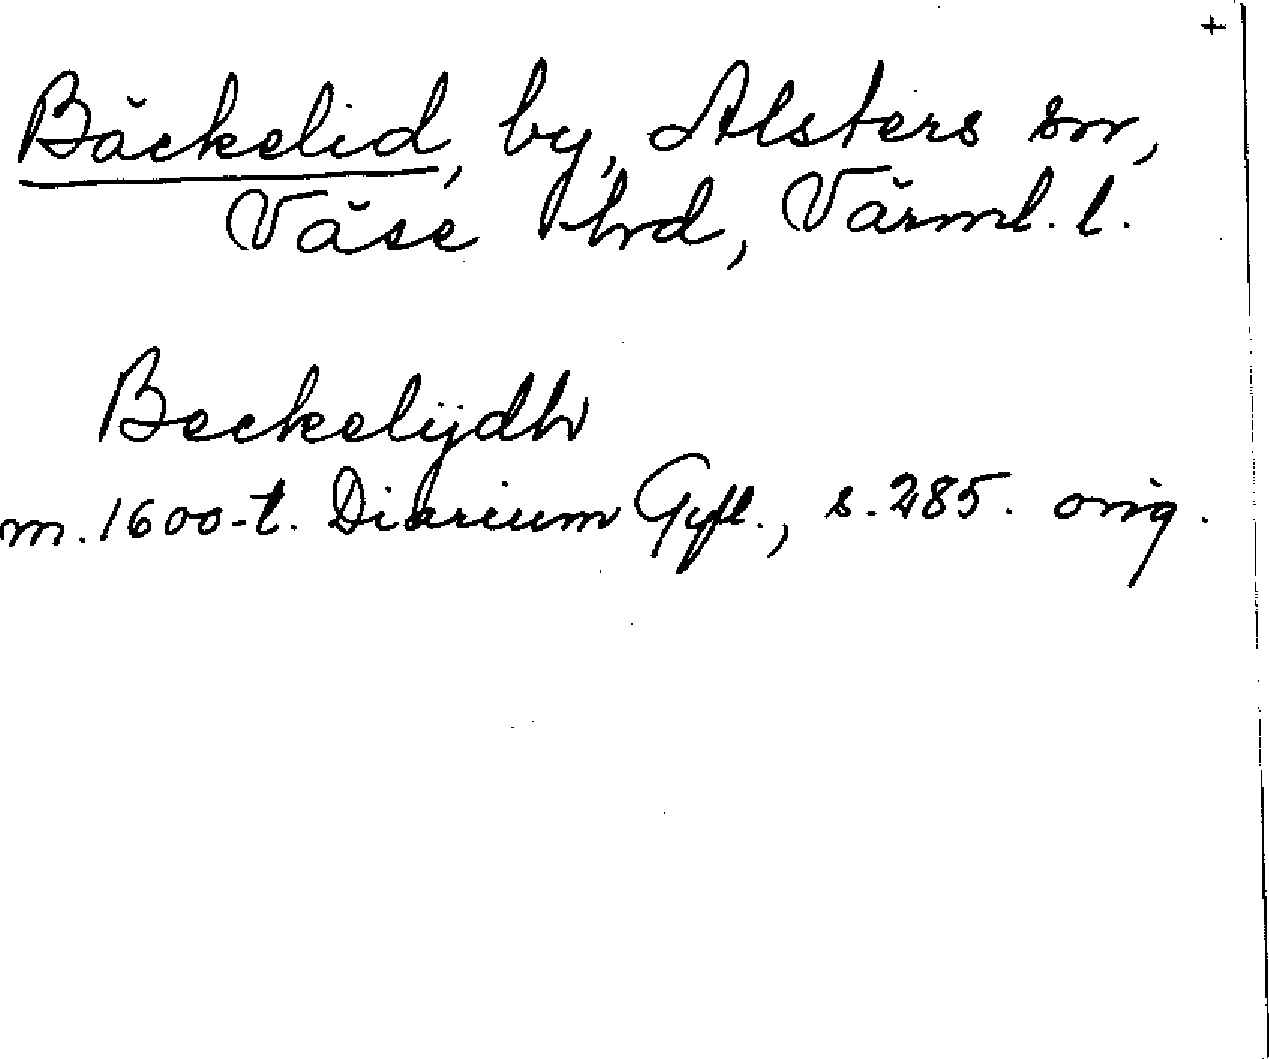 Bäckelid, by, Alsters sn,
Väse hrd, Värml. l.
Beckelijdh
m. 1600-t. Diarium Gyll., s. 285. orig.